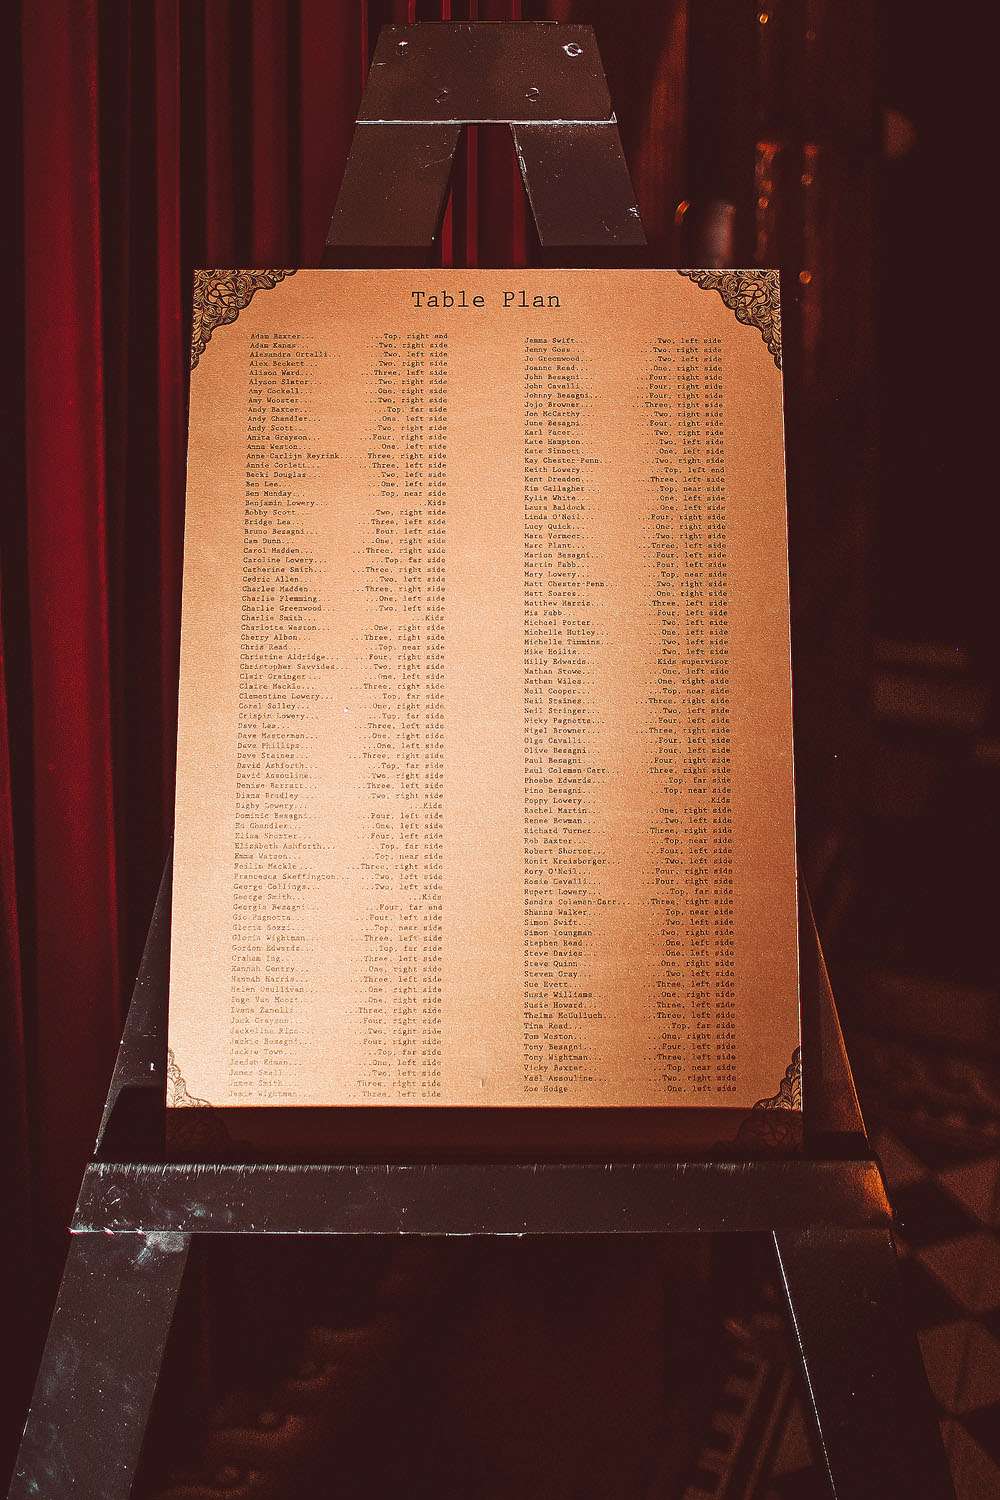 Table Plan
Adam Baxter... ...Top, right end
Adam Kanas... ...Two, right side
Alexandra Ortalli... ...Two, left side
Alex Beckett... ...Two, right side
Alison Ward... ...Three, left side
Alyson Slater... ...One, right side
Amy Cockell... ...One, right side
Amy Wooster... ...Two, right side
Andy Baxter... ...Top, far side
Andy Chandler... ...One, left side
Andy Scott... ...Two, right side
Amita Grayson... ...Four, right side
Anna Weston... ...One, left side
Anne-Carlijn Reyrink... ...Three, right side
Annie Corlett... ...Three, left side
Becki Douglas... ...Two, left side
Ben Lee... ...One, left side
Ben Munday... ...Top, near side
Benjamin Lowery... ...Kids
Bobby Scott... ...Two, right side
Bridge Lea... ...Three, left side
Bruno Besagni... ...Four, left side
Cam Dunn... ...One, right side
Carol Madden... ...Three, right side
Caroline Lowery... ...Top, far side
Catherine Smith... ...Three, right side
Cedric Allen... ...Two, left side
Charles Madden... ...Three, right side
Charlie Flemming... ...One, left side
Charlie Greenwood... ...Two, left side
Charlie Smith... ...Kids
Charlotte Weston... ...One, right side
Cherry Albon... ...Three, right side
Chris Read... ...Top, near side
Christine Aldridge... ...Four, right side
Christopher Savvides... ...Two, right side
Clair Grainger... ...One, left side
Claire Mackie... ...Three, right side
Clementine Lowery... ...Top, far side
Coral Salley... ...One, right side
Crispin Lowery... ...Top, far side
Dave Lea... ...Three, left side
Dave Masterman... ...One, right side
Dave Phillips... ...One, left side
Dave Staines... ...Three, right side
David Ashforth... ...Top, far side
David Assouline... ...Two, right side
Denise Barratt... ...Three, left side
Diana Bradley... ...Two, right side
Digby Lowery... ...Kids
Dominic Besagni... ...Four, left side
Ed Chandler... ...One, left side
Elisa Shorter... ...Four, left side
Elizabeth Ashforth... ...Top, far side
Emma Watson... ...Top, near side
Feilim Mackle... ...Three, right side
Francesca Skeffington... ...Two, left side
George Collings... ...Two, left side
George Smith... ...Kids
Georgia Besagni... ...Four, far end
Gio Pagnotta... ...Four, left side
Gloria Sozzi... ...Top, near side
Gloria Wightman... ...Three, left side
Gordon Edwards... ...Top, far side
Graham Ing... ...Three, left side
Hannah Gentry... ...One, right side
Hannah Harris... ...Three, left side
Helen Osullivan... ...One, right side
Inge Van Moort... ...One, right side
Ivana Zanelli... ...Three, right side
Jack Grayson... ...Four, right side
Jackeline Rios... ...Two, right side
Jackie Besagni... ...Four, right side
Jackie Town... ...Top, far side
Jaedan Edman... ...One, left side
James Small... ...Two, left side
James Smith... ...Three, right side
Jamie Wightman... ...Three, left side
Jemma Swift... ...Two, left side
Jenny Goss... ...Two, right side
Jo Greenwood... ...Two, left side
Joanne Read... ...One, left side
John Besagni... ...Four, right side
John Cavalli... ...Four, right side
Johnny Besagni... ...Four, right side
Jojo Browner... ...Three, right side
Jon McCarthy... ...Two, left side
June Besagni... ...Four, right side
Karl Pacer... ...Two, right side
Kate Hampton... ...Two, right side
Kate Sinnott... ...One, left side
Kay Chester-Penn... ...Two, right side
Keith Lowery... ...Top, left end
Kent Dreadon... ...Three, left side
Kim Gallagher... ...Top, near side
Kylie White... ...One, left side
Laura Baldock... ...One, left side
Linda O'Neil... ...Four, right side
Lucy Quick... ...One, right side
Marc Vermeer... ...Two, right side
Marc Plant... ...Three, left side
Marion Besagni... ...Four, left side
Martin Fabb... ...Four, left side
Mary Lowery... ...Top, near side
Matt Chester-Penn... ...Two, right side
Matt Soares... ...One, right side
Matthew Harris... ...Three, left side
Mia Fabb... ...Four, left side
Michael Porter... ...Two, left side
Michelle Hutley... ...One, left side
Michelle Timmins... ...Two, left side
Mike Hollis... ...Two, left side
Milly Edwards... ...Kids supervisor
Nathan Stowe... ...One, left side
Nathan Wiles... ...One, right side
Neil Cooper... ...Top, near side
Neil Staines... ...Three, right side
Neil Stringer... ...Two, left side
Nicky Pagnotta... ...Four, left side
Nigel Browner... ...Three, right side
Olga Cavalli... ...Four, left side
Olive Besagni... ...Four, left side
Paul Besagni... ...Four, right side
Paul Coleman-Carr... ...Three, right side
Phoebe Edwards... ...Top, far side
Pino Besagni... ...Top, near side
Poppy Lowery... ...Kids
Rachel Martin... ...One, right side
Renee Bowman... ...Two, left side
Richard Turner... ...Three, right side
Rob Baxter... ...Top, near side
Robert Shorter... ...Four, left side
Ronit Kreisberger... ...Two, left side
Rory O'Neil... ...Four, right side
Rosie Cavalli... ...Four, right side
Rupert Lowery... ...Top, far side
Sandra Coleman-Carr... ...Three, right side
Shanna Walker... ...Top, near side
Simon Swift... ...Two, left side
Simon Youngman... ...Two, right side
Stephen Read... ...One, left side
Steve Davies... ...One, left side
Steve Quinn... ...One, right side
Steven Gray... ...Two, left side
Sue Evett... ...Three, left side
Susie Williams... ...One, right side
Susie Howard... ...Three, left side
Thelma McCulluch... ...Three, left side
Tina Read... ...Top, far side
Tom Weston... ...One, right side
Tony Besagni... ...Four, left side
Tony Wightman... ...Three, left side
Vicky Baxter... ...Top, near side
Yael Assouline... ...Two, right side
Zoe Hodge... ...One, left side